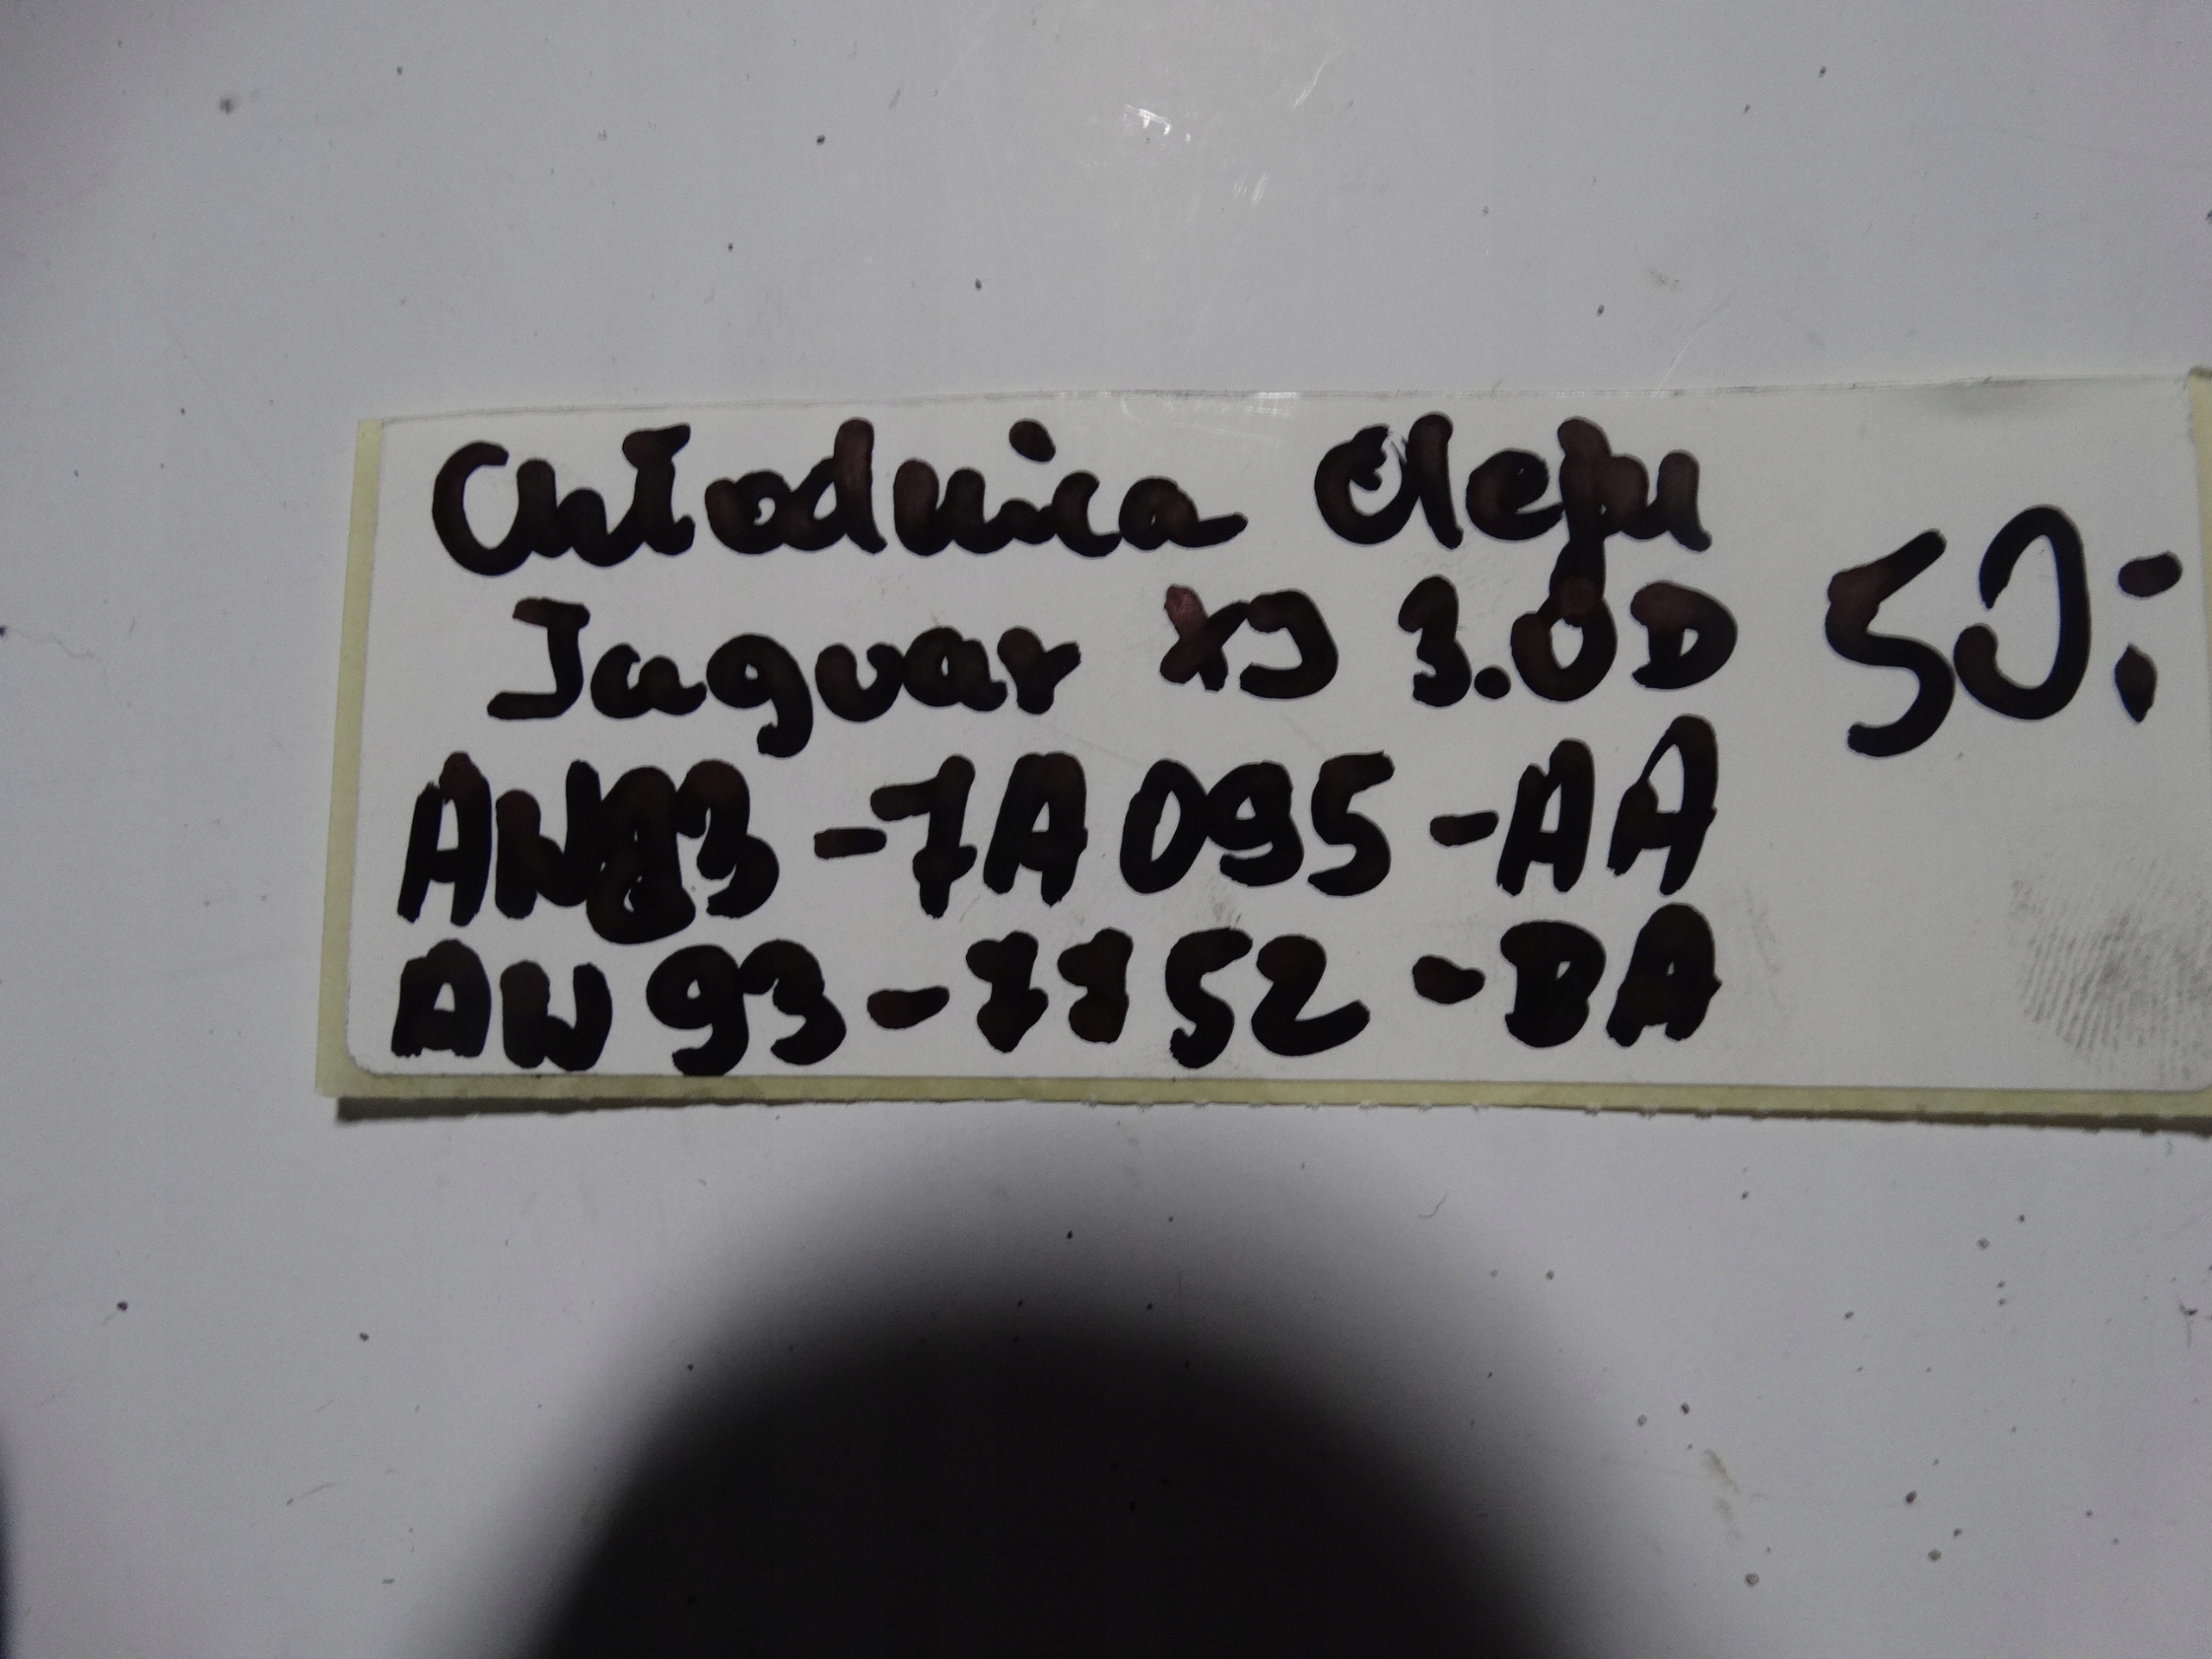 Chłodnica Oleju
Jaguar XJ 3.0D 50:
AW93-7A095-AA
AW93-7752-BA